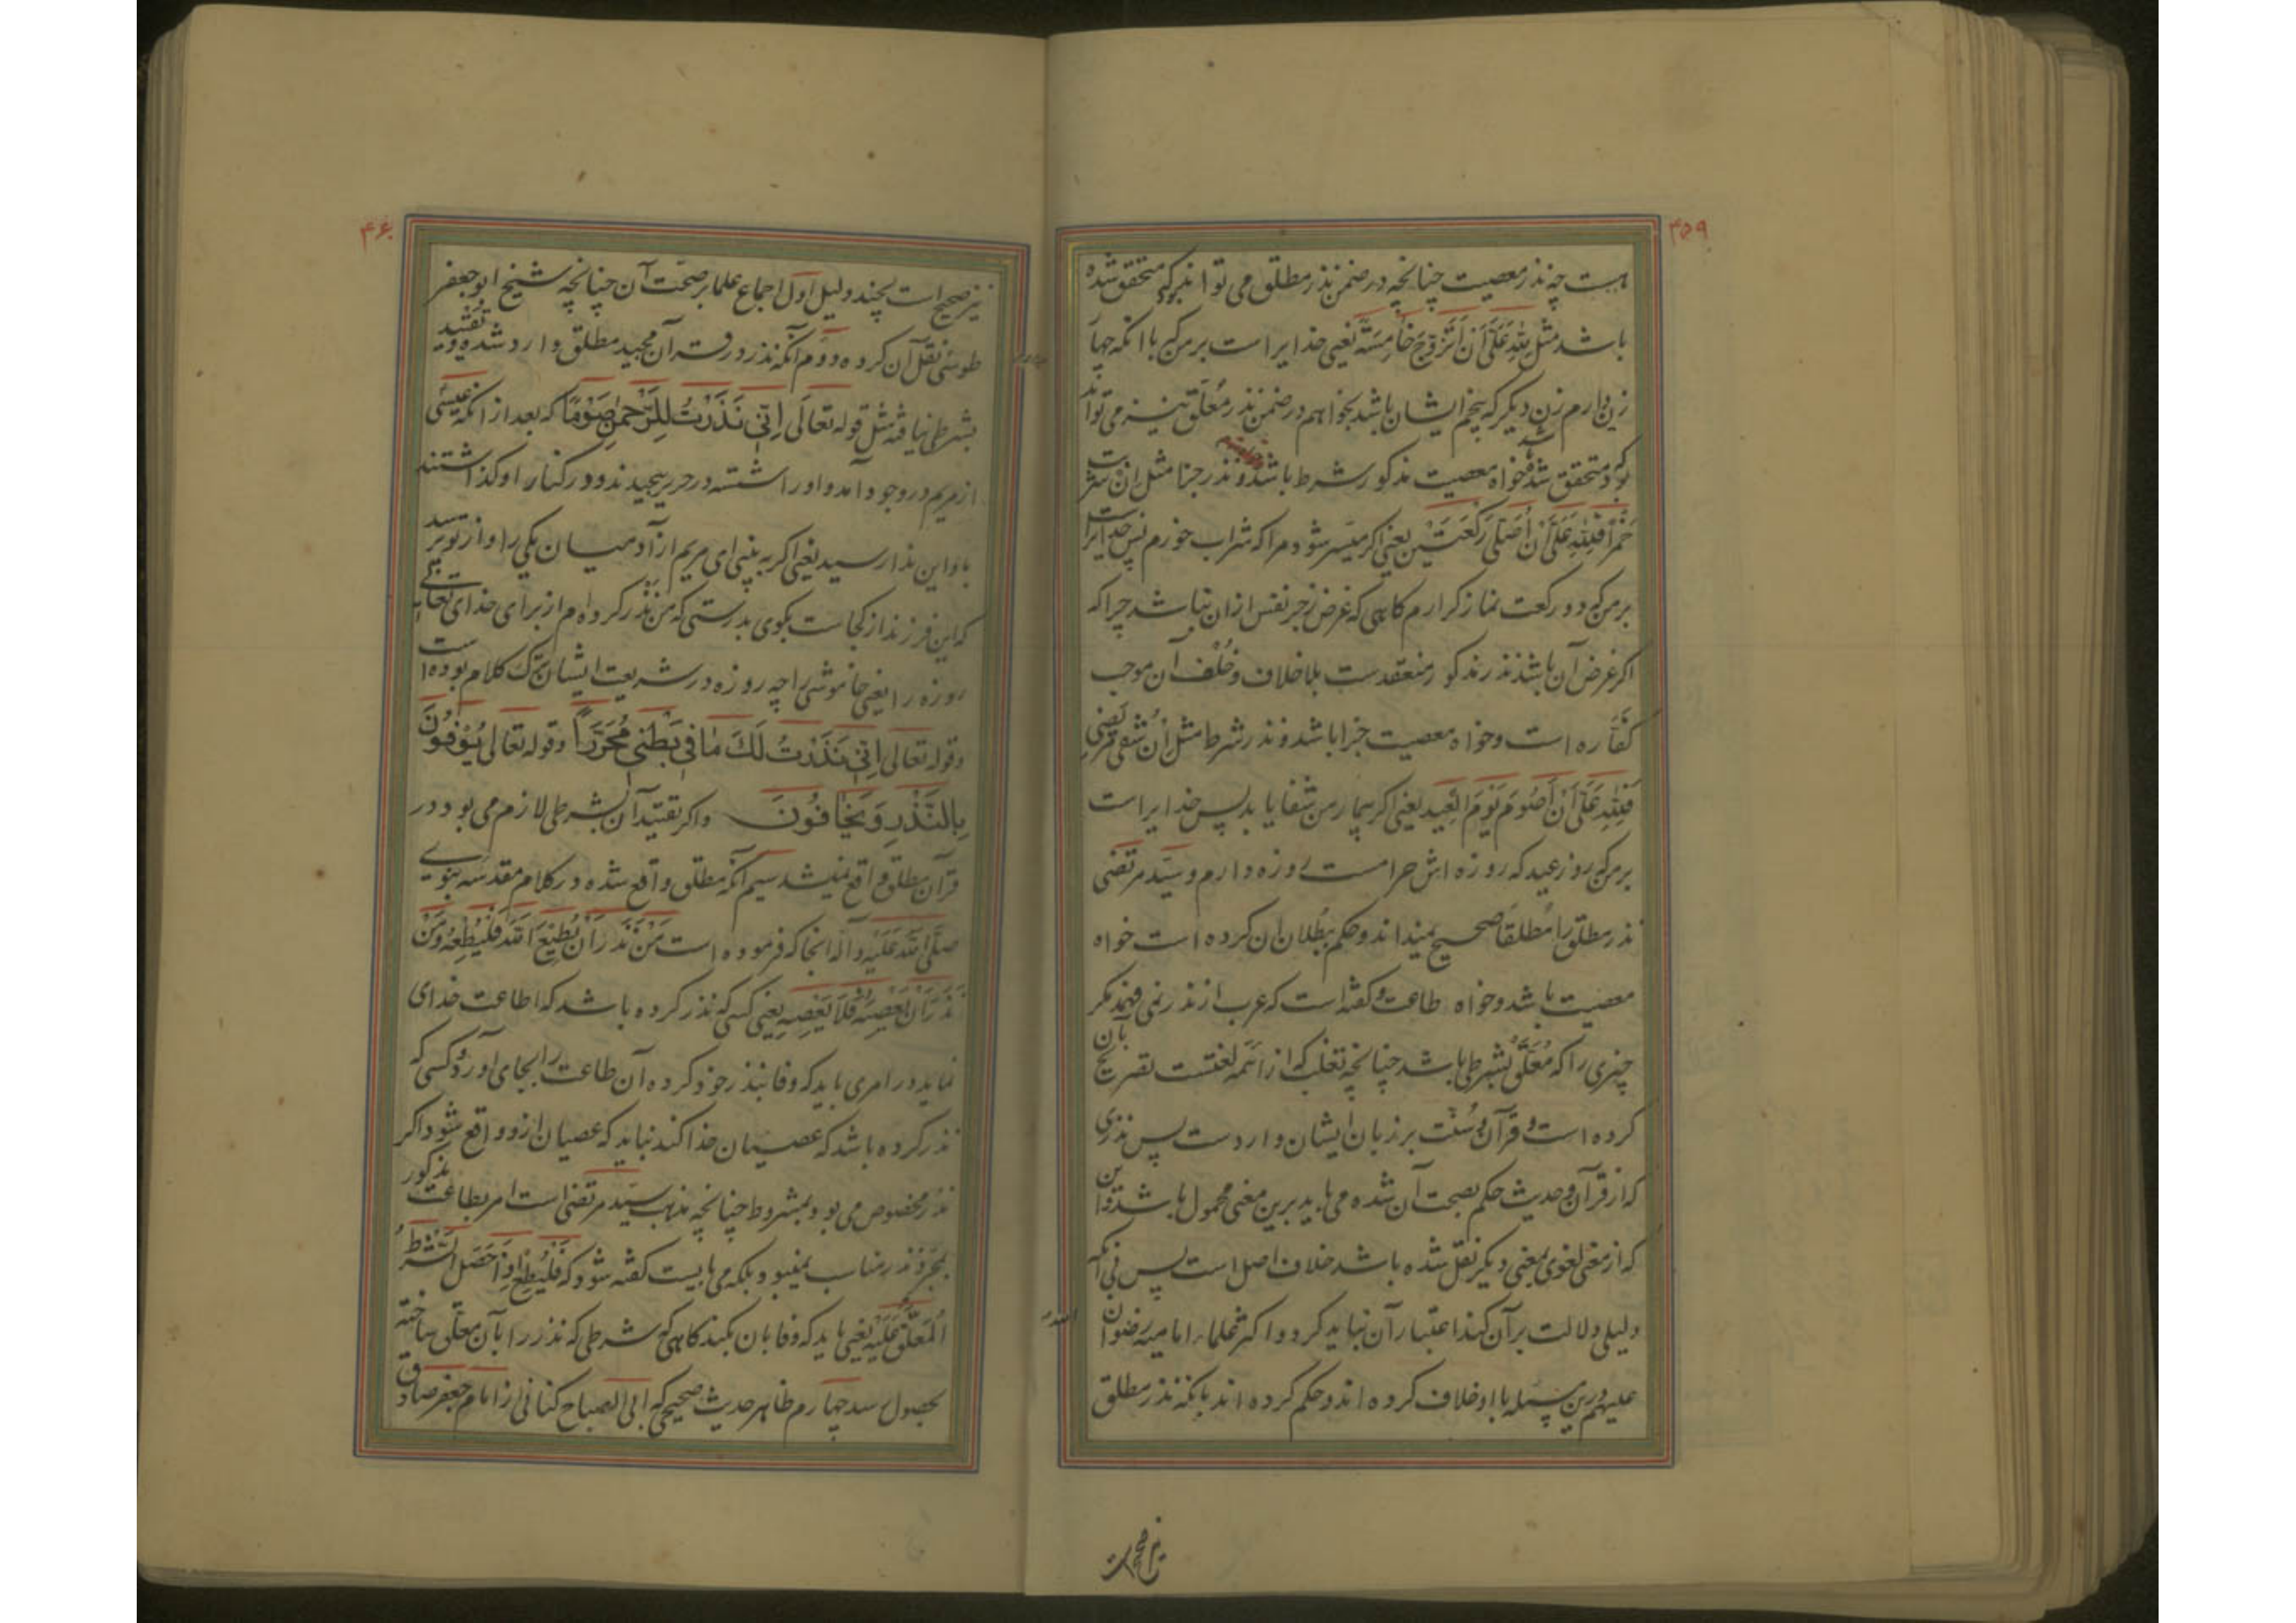 ۴۵۹
هست چه نذر معصیت چنانچه در ضمن نذر مطلق می تواند که متحقق شده
باشد مثل لِلّهِ عَلَیَّ اَنْ اَتَزَوَّجَ خامِسَةً یعنی خدایراست بر من که با انکه چهار
زن دارم زن دیگر که پنجم ایشان باشد بخواهم در ضمن نذر مُعَلّق نیز می تواند
که متحقق شود خواه معصیت مذکور شرط باشد و نذر جزا مثل ان شربت
خَمْرًا فَلِلّهِ عَلَیَّ اَنْ اُصَلِّیَ رَکْعَتَیْنِ یعنی اکر میسر شود مرا که شراب خورم پس خدایراست
بر من که دو رکعت نماز کزارم کاهی که غرض زجر نفس ازان نباشد چرا که
اکر غرض آن باشد نذر مذکور منعقدست بلا خلاف و خُلف آن موجب
کفّاره است و خواه معصیت جزا باشد و نذر شرط مثل اِنْ شُفِیَ مریضی
فَلِلّهِ عَلَیَّ اَنْ اَصُومَ یَوْمَ الْعِید یعنی اکر بیمار من شفا یابد پس خدایراست
بر من که روز عید که روزه اش حرامست روزه دارم و سیّد مرتضی
نذر مطلق را مُطلقًا صحیح نمیداند و حکم ببُطلان ان کرده است خواه
معصیت باشد و خواه طاعت و کفته است که عرب از نذر نمی فهمد مکر
چیزی را که مُعَلَّق بشرطی باشد چنانچه ثعلب که از ائمه لغتست بآن تصریح
کرده است و قرآن و سُنّت بر زبان ایشان واردست پس نذری
که از قرآن و حدیث حکم بصحت آن شده می باید برین معنی محمول باشد و این
که از معنی لغوی بمعنی دیکر نقل شده باشد خلاف اصل است پس بی آنکه
دلیلی دلالت برآن کند اعتبار آن نباید کرد و اکثر علماء امامیه رضوان الله
علیهم درین مسئله با او خلاف کرده اند و حکم کرده اند بانکه نذر مطلق
نیز صحیح است
۴۶۰
نیز صحیح است بچند دلیل اول اجماع علما بر صحّت آن چنانچه شیخ ابو جعفر
طوسی نقل آن کرده دوم آنکه نذر در قرآن مجید مطلق وارد شده و تقیید
بشرط نیافته مثل قوله تعالی اِنّی نَذَرْتُ لِلرَّحْمنِ صَوْمًا که بعد از انکه عیسی
از مریم در وجود آمد و اورا شسته در حریر پیچیدند و در کنار او کذاشتند
باو این ندا رسید یعنی اکر به بینی ای مریم از آدمیان یکی را و از تو پرسد
که این فرزند از کجاست بکوی بدرستی که من نذر کرده ام از برای خدای تعالی
روزه را یعنی خاموشی را چه روزه در شریعت ایشان بترک کلام بوده است
وقوله تعالی اِنّی نَذَرْتُ لَکَ مٰا فی بَطْنی مُحَرَّرًا وقوله تعالی یُوْفُونَ
بِالنَّذْرِ وَیَخافُونَ واکر تقیید آن بشرطی لازم می بود در
قرآن مطلق واقع نمیشد سیم آنکه مطلق واقع شده در کلام مقدسه نبوی
صلّی الله علیه وآله انجا که فرموده است مَنْ نَذَرَ اَنْ یُطیعَ اللهَ فَلْیُطِعْهُ وَمَنْ
نَذَرَ اَنْ یَعْصِیَهُ فَلا یَعْصِهِ یعنی کسی که نذر کرده باشد که اطاعت خدای
نماید در امری باید که وفا بنذر خود کرده آن طاعت را بجای آورد و کسی که
نذر کرده باشد که عصیان خدا کند نباید که عصیان ازو واقع شود واکر
نذر مخصوص می بود بمشروط چنانچه مذهب سیّد مرتضی است امر بطاعت مذکور
بمجرّد نذر مناسب نمیبود بلکه می بایست کفته شود که فَلْیُطِعْ اِذا حَصَلَ الشَّرْطُ
الْمُعَلَّق عَلَیْهِ یعنی باید که وفا بان بکند کاهی که شرطی که نذر را بآن معلّق ساخته
بحصول رسد چهارم ظاهر حدیث صحیحی که ابی الصباح کنانی از امام جعفر صادق